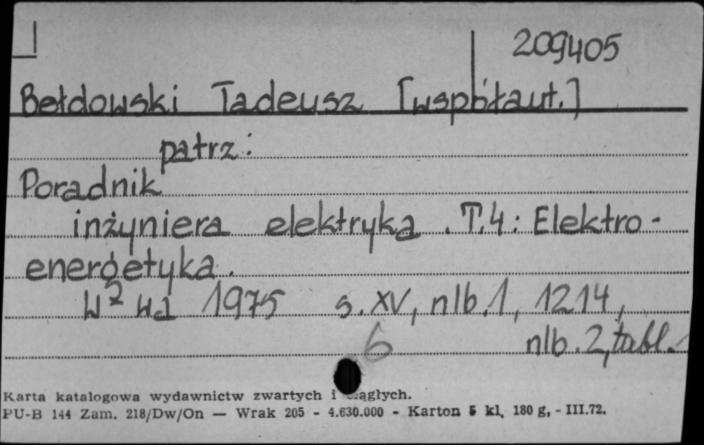 209405
Bełdowski Tadeusz [współaut.]
patrz:
Poradnik
inżyniera elektryka. T.4: Elektro-
energetyka.
W² wa 1975 s. XV, nlb.1, 1214,
nlb.2, tabl.
6
Karta katalogowa wydawnictw zwartych i ciągłych.
PU-B 144 Zam. 218/Dw/On — Wrak 205 - 4.630.000 - Karton 5 kl. 180 g, - III.72.